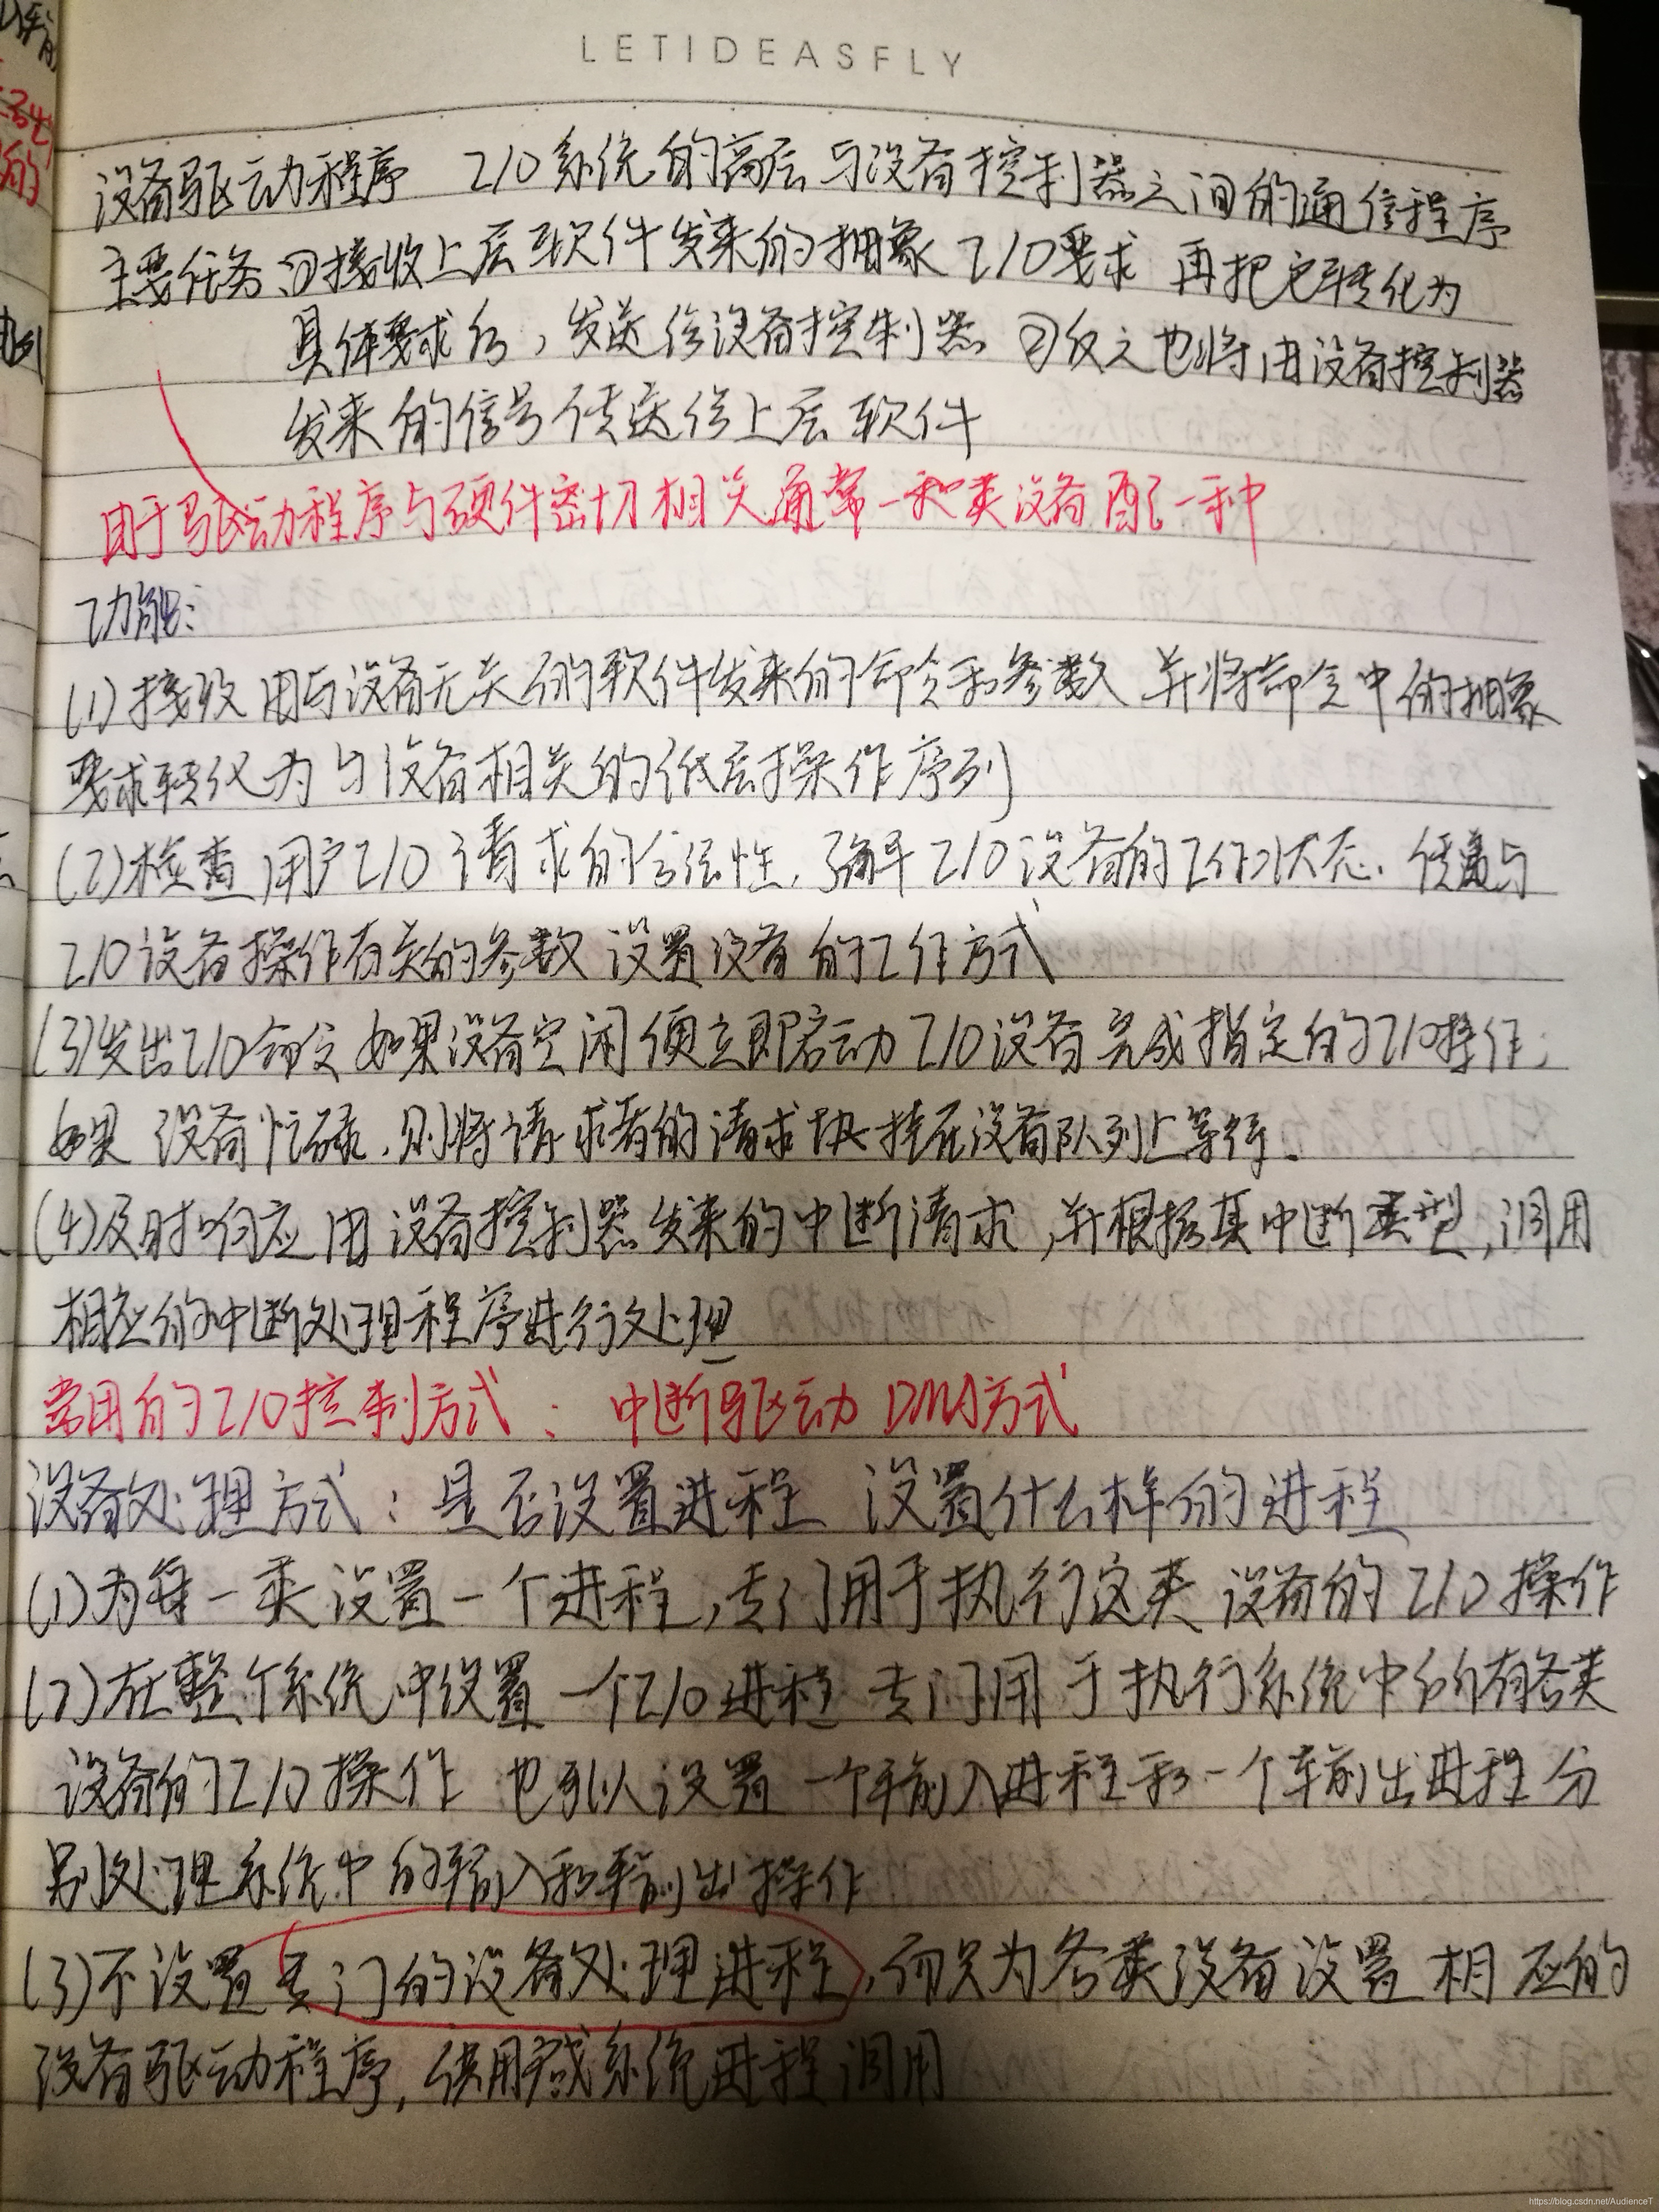 LETIDEASFLY
设备驱动程序 I/O系统的高层与设备控制器之间的通信程序
主要任务 ①接收上层软件发来的抽象I/O要求 再把它转化为
具体要求后，发送给设备控制器 ②反之也将由设备控制器
发来的信号传送给上层软件
由于驱动程序与硬件密切相关 通常一种类设备配一种
功能：
(1)接收用与设备无关的软件发来的命令和参数 并将命令中的抽象
要求转化为与设备相关的低层操作序列
(2)检查用户I/O请求的合法性，了解I/O设备的工作状态、传递与
I/O设备操作有关的参数 设置设备的工作方式
(3)发出I/O命令 如果设备空闲便立即启动I/O设备完成指定的I/O操作；
如果 设备忙碌，则将请求者的请求块挂在设备队列上等待.
(4)及时响应 由设备控制器发来的中断请求，并根据其中断类型，调用
相应的中断处理程序进行处理
常用的I/O控制方式： 中断驱动 DMA方式
设备处理方式：是否设置进程 设置什么样的进程
(1)为每一类设置一个进程，专门用于执行这类设备的I/O操作
(2)在整个系统中设置一个I/O进程 专门用于执行系统中所有各类
设备的I/O操作 也可以设置一个输入进程和一个输出进程 分
别处理系统中的输入和输出操作
(3)不设置专门的设备处理进程，而只为各类设备设置相应的
设备驱动程序，供用户或系统进程调用
https://blog.csdn.net/AudienceT